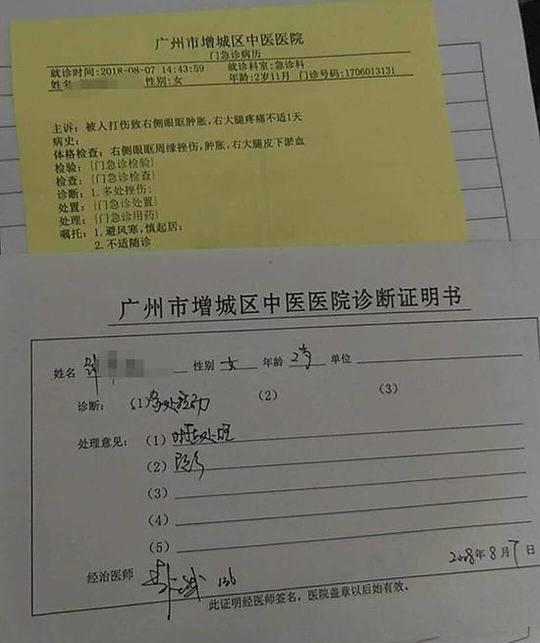 广州市增城区中医医院
门急诊病历
就诊时间:2018-08-07 14:43:59 就诊科室:急诊科
姓名 性别:女 年龄:2岁11月 门诊号码:1706013131
主诉: 被人打伤致右侧眼眶肿胀,右大腿疼痛不适1天
病史:
体格检查: 右侧眼眶周缘挫伤,肿胀,右大腿皮下淤血
检验: {门急诊检验}
检查: {门急诊检查}
诊断: 1.多处挫伤;
处置: {门急诊处置}
处理: {门急诊用药}
嘱托: 1.避风寒,慎起居;
2.不适随诊
广州市增城区中医医院诊断证明书
姓名 性别 女 年龄 2岁 单位
诊断: (1) 多处挫伤 (2) (3)
处理意见: (1) 对症处理
(2) 随诊
(3)
(4)
(5)
2018年8月7日
经治医师
此证明经医师签名,医院盖章以后始有效。